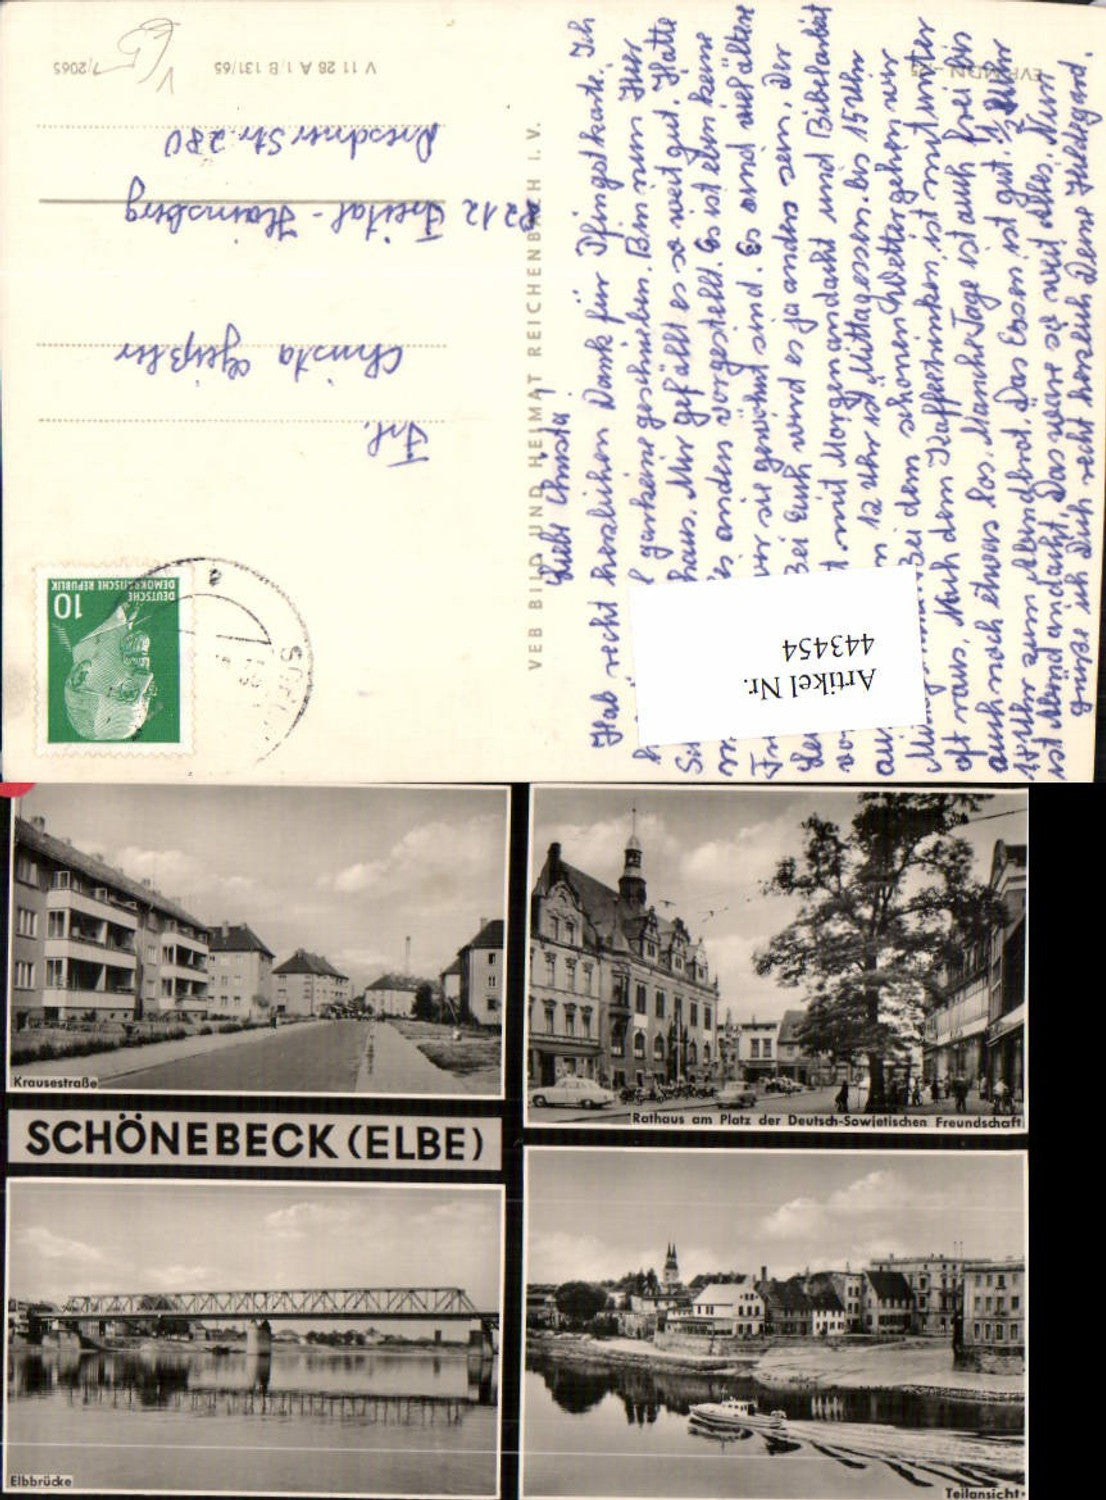 V 11 28 A 1, B 131/65
7/2065
EVP MDN
VEB BILD UND HEIMAT REICHENBACH I. V.
10
DEUTSCHE
DEMOKRATISCHE REPUBLIK
Frl.
Christa Geißler
8212 Freital - Hainsberg
Dresdner Str. 280
Liebe Christa!
Hab recht herzlichen Dank für Pfingstkarte. Ich
garkeine geschrieben. Bin nun hier
haus. Mir gefällt es so weit gut. Hatte
es anders vorgestellt. Es ist eben keine
wir sie gewöhnt sind. Es sind viel ältere
Bei Euch wird es ja anders sein. Der
mit Morgenandacht und Bibelarbeit
12 Uhr ist Mittagessen. bis 15 Uhr
Bei dem schönen Wetter gehen wir
oft raus. Nach dem Kaffeetrinken ist mitunter
auch noch etwas los. Manche Tage ist auch frei bis
zum Abendbrot. Das Essen ist gut. 1/2 Uhr
ist Abendandacht. Das wäre so weit alles. Nun
grüße ich Dich recht herzlich Deine Hildegard.
Artikel Nr.
443454
Krausestraße
Rathaus am Platz der Deutsch-Sowjetischen Freundschaft
SCHÖNEBECK (ELBE)
Elbbrücke
Teilansicht